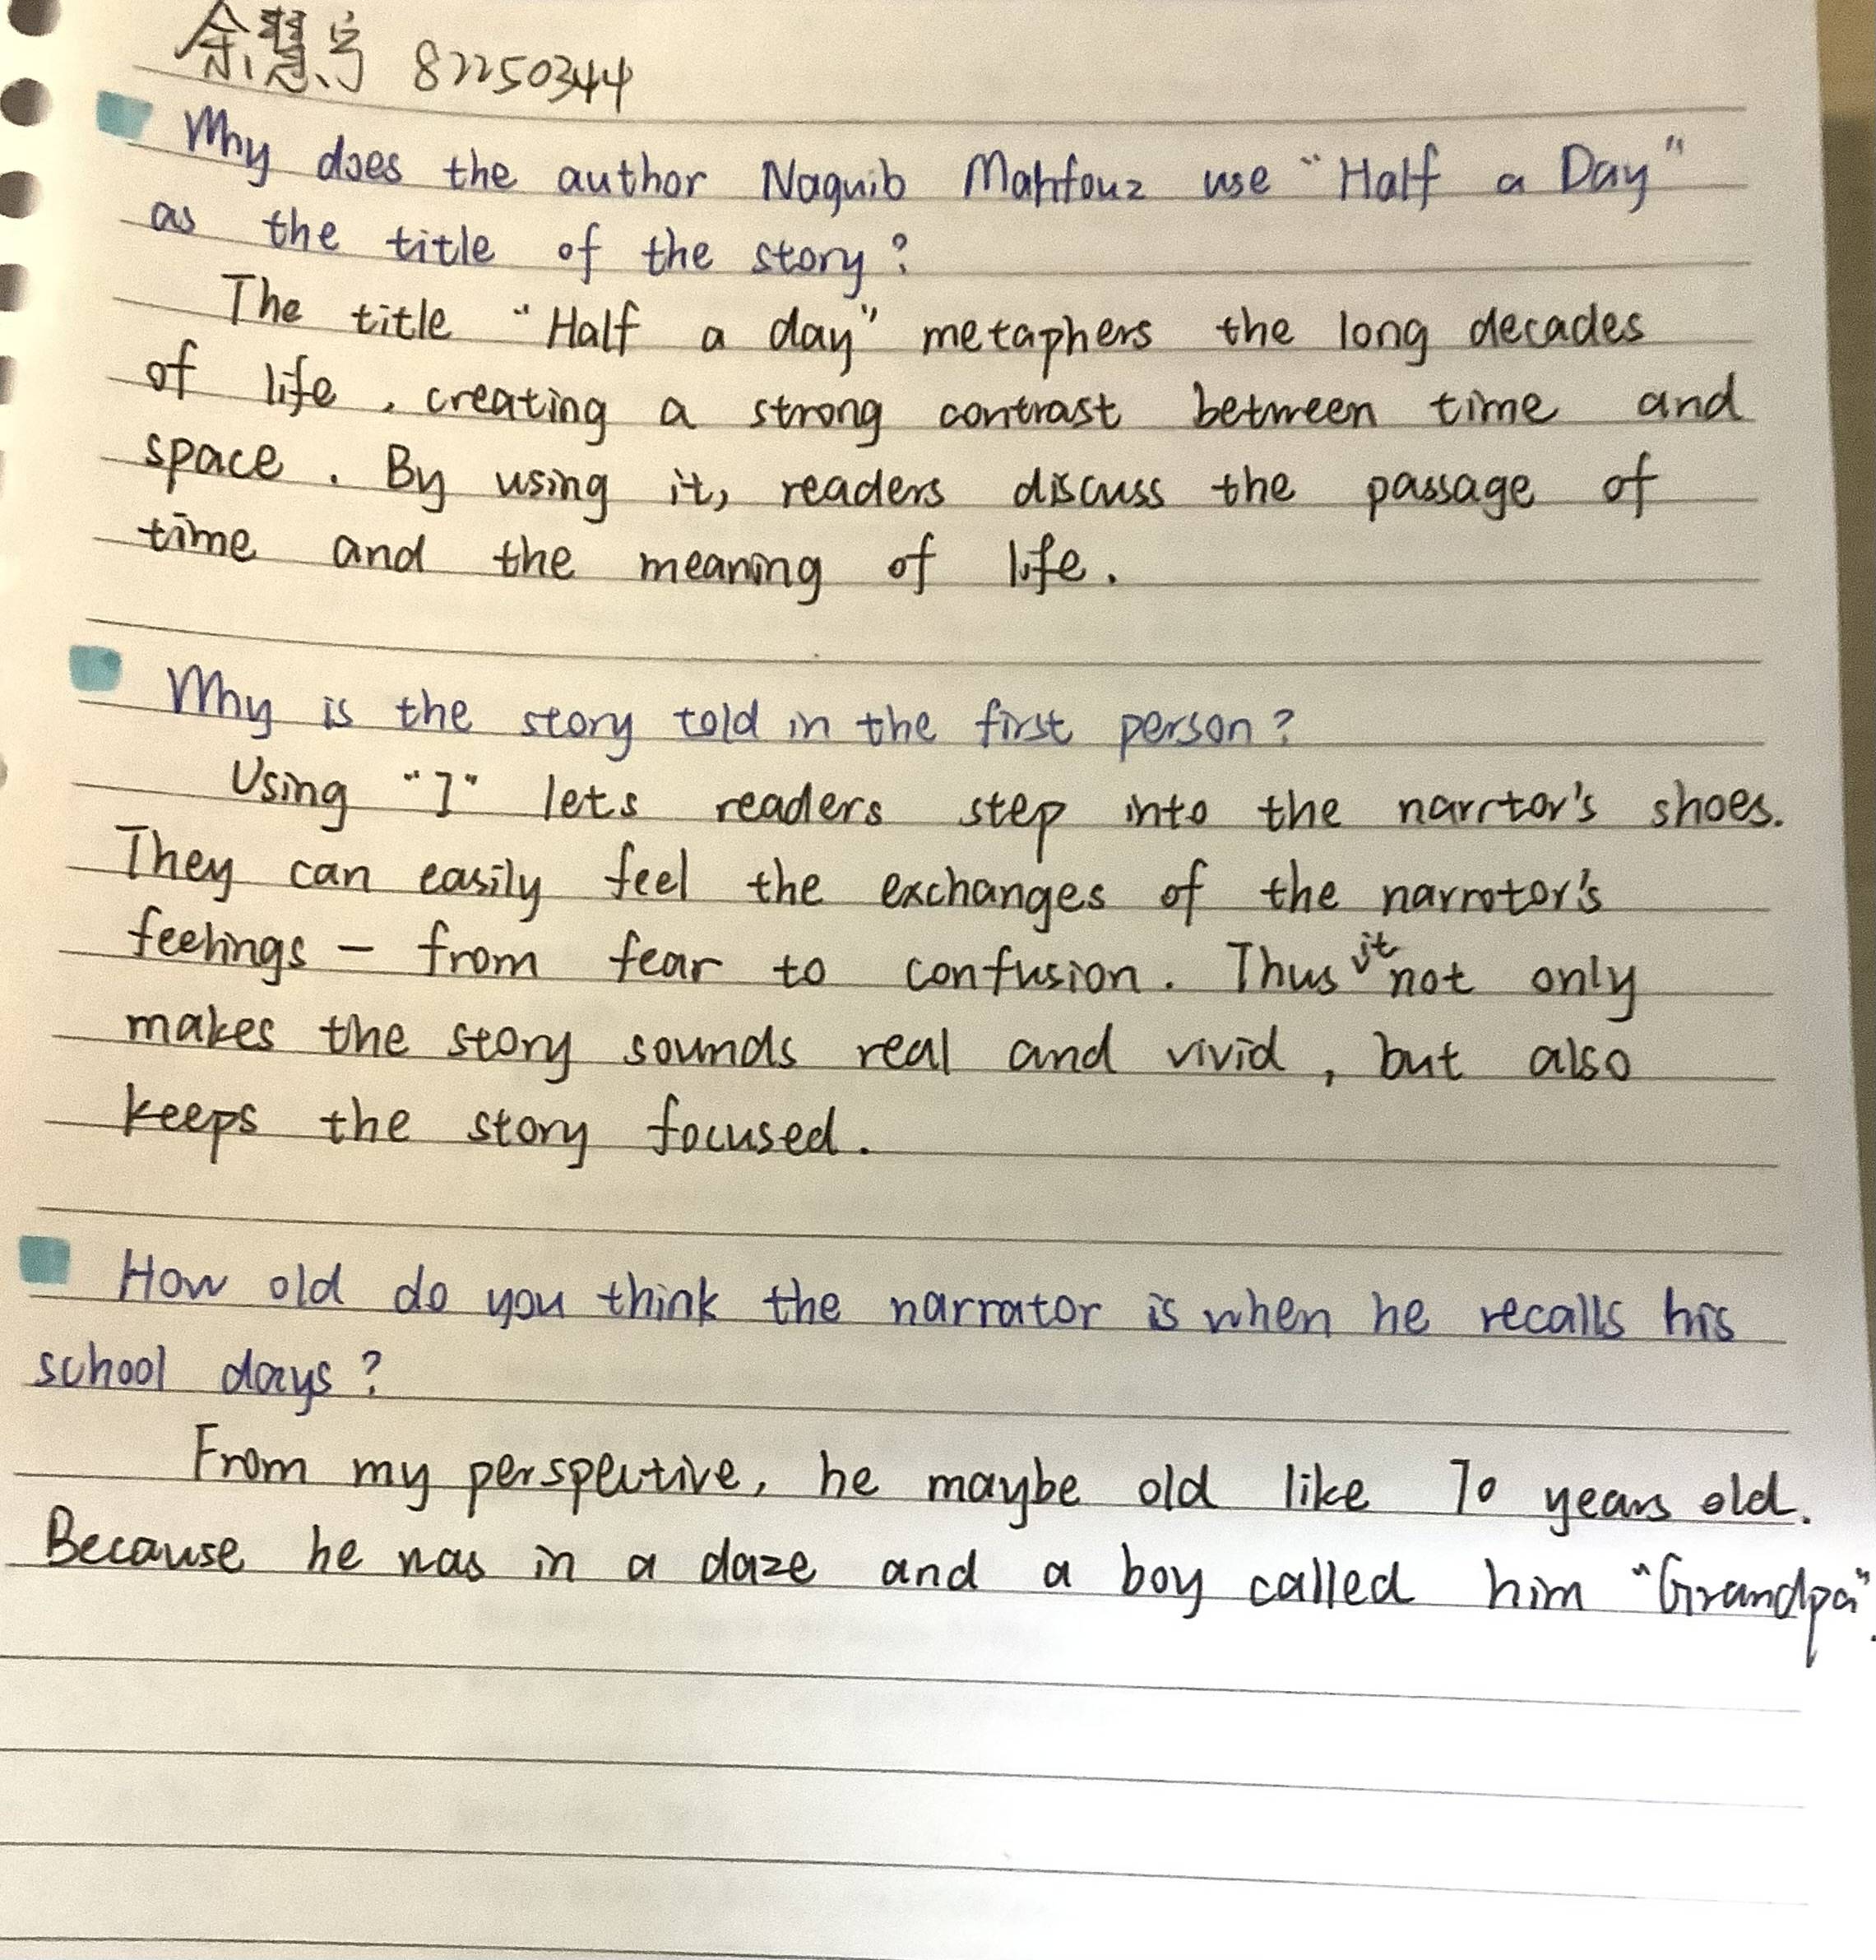 余慧宇 82250344
Why does the author Naguib Mahfouz use "Half a Day"
as the title of the story?
The title "Half a day" metaphers the long decades
of life, creating a strong contrast between time and
space. By using it, readers discuss the passage of
time and the meaning of life.
Why is the story told in the first person?
Using "I" lets readers step into the narrtor's shoes.
They can easily feel the exchanges of the narrotor's
feelings – from fear to confusion. Thus it not only
makes the story sounds real and vivid, but also
keeps the story focused.
How old do you think the narrator is when he recalls his
school days?
From my perspective, he maybe old like 70 years old.
Because he was in a daze and a boy called him "Grandpa".